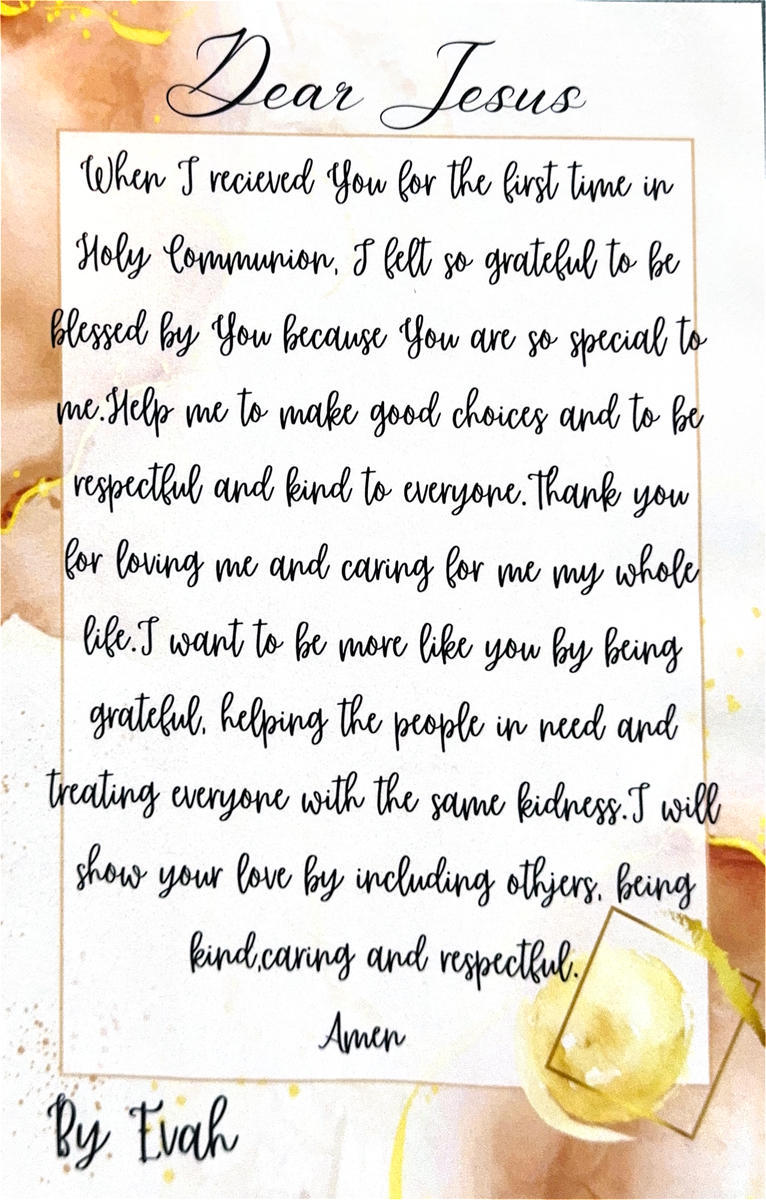 Dear Jesus
When I recieved You for the first time in
Holy Communion, I felt so grateful to be
blessed by You because You are so special to
me.Help me to make good choices and to be
respectful and kind to everyone.Thank you
for loving me and caring for me my whole
life.I want to be more like you by being
grateful, helping the people in need and
treating everyone with the same kidness.I will
show your love by including othjers, being
kind,caring and respectful.
Amen
By Evah